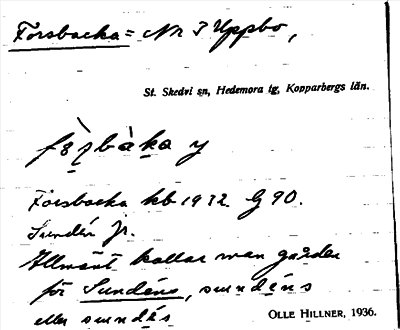 Forsbacka = Nr 3 Uppbo,
St. Skedvi sn, Hedemora tg, Kopparbergs län.
Forsbacka kb 1932 G 90.
Sundén Jr.
Allmänt kallar man gården
för Sundéns, sundéns
eller sundés
OLLE HILLNER, 1936.